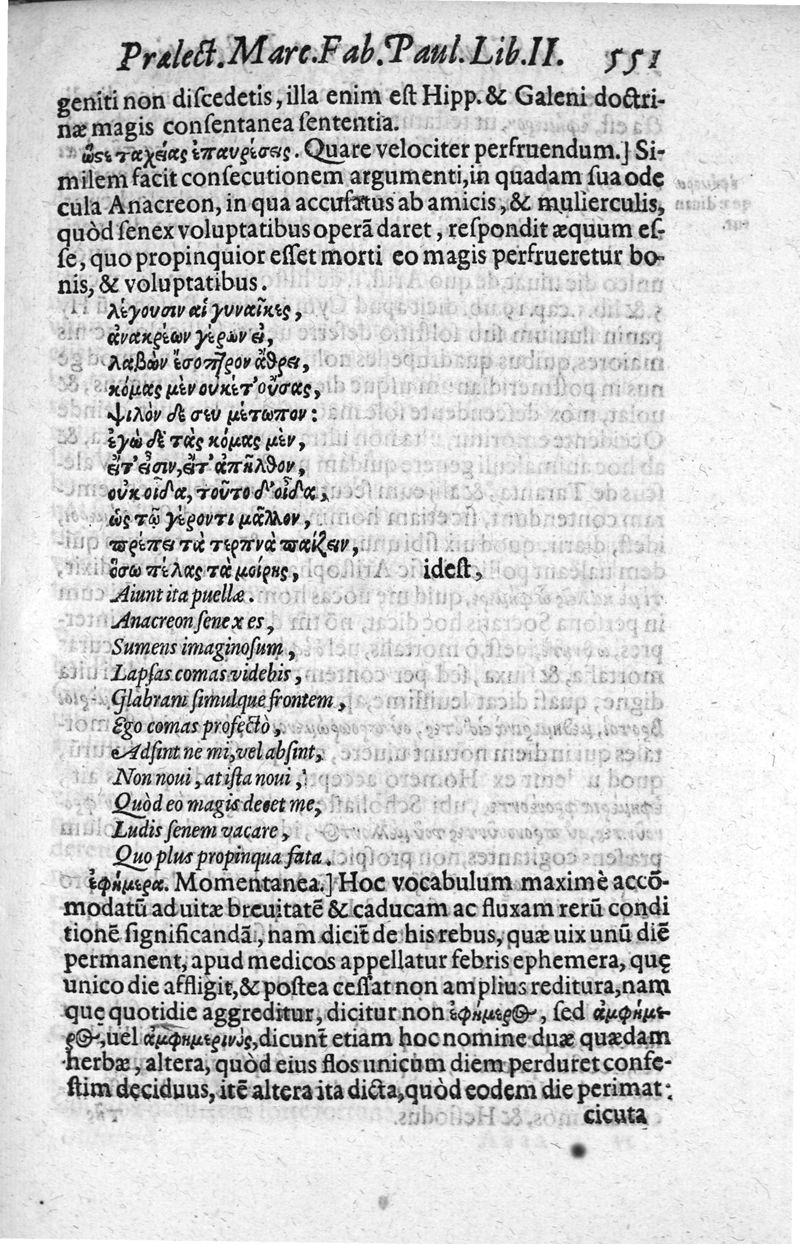 Prælect. Marc. Fab. Paul. Lib. II. 551
geniti non diſcedetis, illa enim eſt Hipp. & Galeni doctri-
næ magis conſentanea ſententia.
ὥστε ταχείας ἐπαυρέσεις. Quare velociter perfruendum.] Si-
milem facit conſecutionem argumenti, in quadam ſua odę
cula Anacreon, in qua accuſatus ab amicis, & mulierculis,
quòd ſenex voluptatibus operã daret, reſpondit æquum eſ-
ſe, quo propinquior eſſet morti eo magis perfrueretur bo-
nis, & voluptatibus.
λέγουσιν αἱ γυναῖκες,
ἀνακρέων γέρων εἶ,
λαβὼν ἔσοπτρον ἄθρει,
κόμας μὲν οὐκέτ' οὔσας,
ψιλὸν δέ σευ μέτωπον:
ἐγὼ δὲ τὰς κόμας μὲν,
εἴτ' εἰσὶν, εἴτ' ἀπῆλθον,
οὐκ οἶδα, τοῦτο δ' οἶδα,
ὡς τῷ γέροντι μᾶλλον,
πρέπει τὰ τερπνὰ παίζειν,
ὅσω πέλας τὰ μοίρης, ideſt,
Aiunt ita puellæ.
Anacreon ſenex es,
Sumens imaginoſum,
Lapſas comas videbis,
Glabram ſimulque frontem,
Ego comas profectò,
Adſint ne mi, vel abſint,
Non noui, at iſta noui,
Quòd eo magis decet me,
Ludis ſenem vacare,
Quo plus propinqua fata.
ἐφήμερα. Momentanea.] Hoc vocabulum maximè accõ-
modatũ ad uitæ breuitatẽ & caducam ac fluxam rerũ condi
tionẽ ſignificandã, nam dicit̃ de his rebus, quæ uix unũ diẽ
permanent, apud medicos appellatur febris ephemera, quę
unico die affligit, & poſtea ceſſat non amplius reditura, nam
quę quotidie aggreditur, dicitur non ἐφήμερος, ſed ἀμφήμε-
ρος, uel ἀμφημερινός, dicunt etiam hoc nomine duæ quædam
herbæ, altera, quòd eius flos unicum diem perduret confe-
ſtim deciduus, itẽ altera ita dicta, quòd eodem die perimat:
cicuta